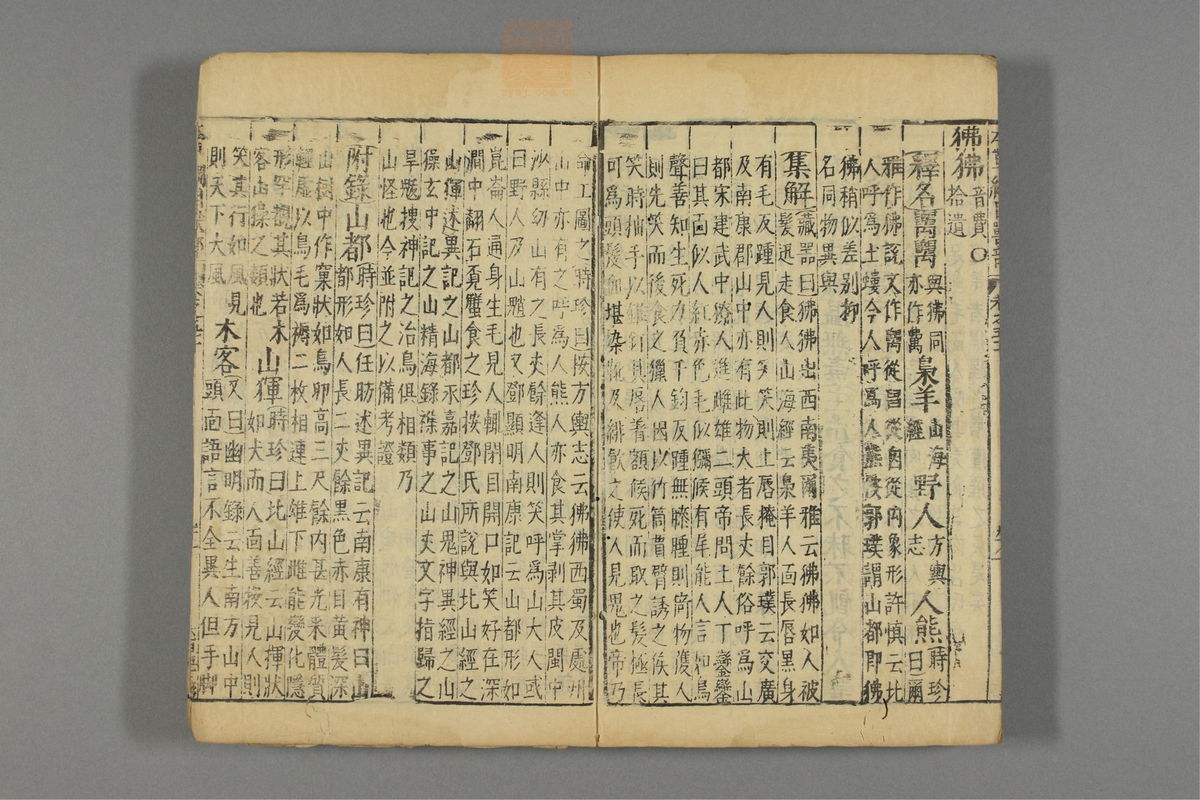 狒狒音費○
拾遺
釋名𥜿𥜿與狒同亦作萬梟羊山海經野人方輿志人熊時珍曰爾
雅作狒說文作𥜿從從囟從内象形許慎云北
人呼爲土螻今人呼爲人熊按郭璞謂山都即狒
狒稍似差别抑
名同物異與
集解藏器曰狒狒出西南夷爾雅云狒狒如人被
髮迅走食人山海經云梟羊人面長唇黑身
有毛反踵見人則笑笑則上唇掩目郭璞云交廣
及南康郡山中亦有此物大者長丈餘俗呼爲山
都宋建武中獠人進雌雄二頭帝問土人丁鑾鑾
曰其面似人紅赤色毛似獼猴有尾能人言如鳥
聲善知生死力負千鈞反踵無膝睡則倚物獲人
則先笑而後食之獵人因以竹筒貫臂誘之候其
笑時抽手以錐釘其唇着額候死而取之髮極長
可爲頭髲血堪染靴及緋飲之使人見鬼也帝乃
命工圖之時珍曰按方輿志云狒狒西蜀及處州
山中亦有之呼爲人熊人亦食其掌剥其皮閩中
沙縣幼山有之長丈餘逢人則笑呼爲山大人或
曰野人及山魈也又鄧顯明南康記云山都形如
崑崙人通身生毛見人輒閉目開口如笑好在深
澗中翻石覓蟹食之珍按鄧氏所說與北山經之
山𤟤述異記之山都永嘉記之山鬼神異經之山
㺑玄中記之山精海録雜事之山丈文字指歸之
旱魃搜神記之治鳥俱相類乃
山怪也今並附之以備考證
附錄山都時珍曰任昉述異記云南康有神曰山
都形如人長二丈餘黑色赤目黃髮深
山樹中作窠狀如鳥卵高三尺餘内甚光采體質
輕虛以鳥毛爲褥二枚相連上雄下雌能變化隱
形罕覩其狀若木
客山㺑之類也山𤟤時珍曰北山經云山𤟤狀
如犬而人面善投見人則
笑其行如風見
則天下大風木客又曰幽明錄云生南方山中
頭面語言不全異人但手脚